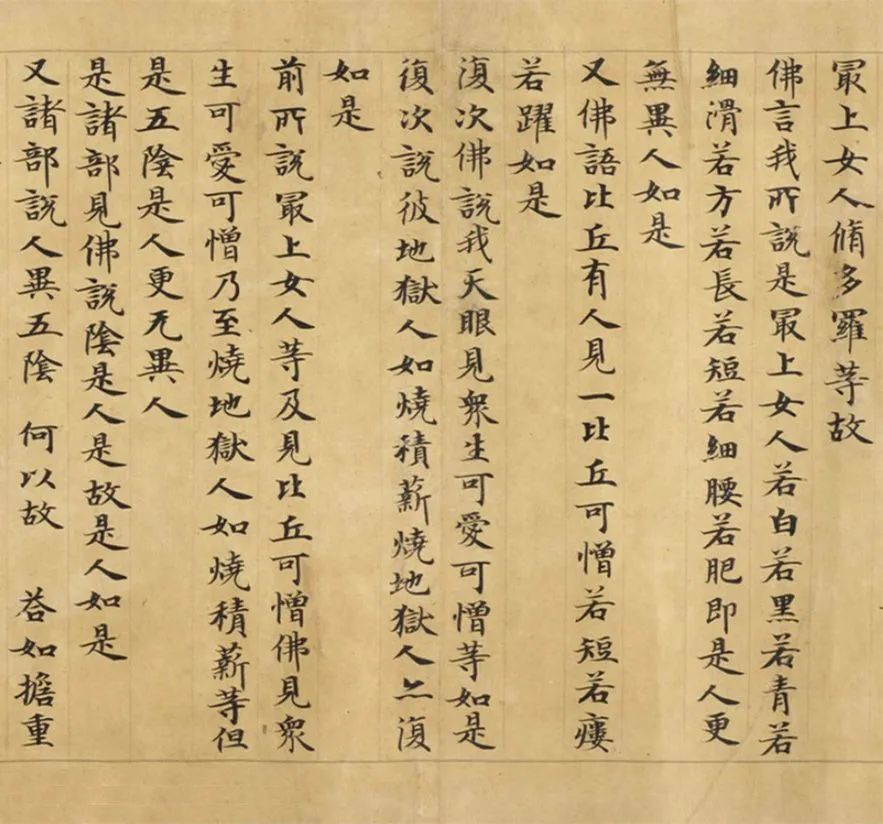 冣上女人脩多羅等故
佛言我所說是冣上女人若白若黑若青若
細滑若方若長若短若細腰若肥即是人更
無異人如是
又佛語比丘有人見一比丘可憎若短若瘻
若躍如是
復次佛說我天眼見衆生可愛可憎等如是
復次說彼地獄人如燒積薪燒地獄人亦復
如是
前所說冣上女人等及見比丘可憎佛見衆
生可愛可憎乃至燒地獄人如燒積薪等但
是五陰是人更无異人
是諸部見佛說陰是人是故是人如是
又諸部說人異五陰 何以故 荅如擔重